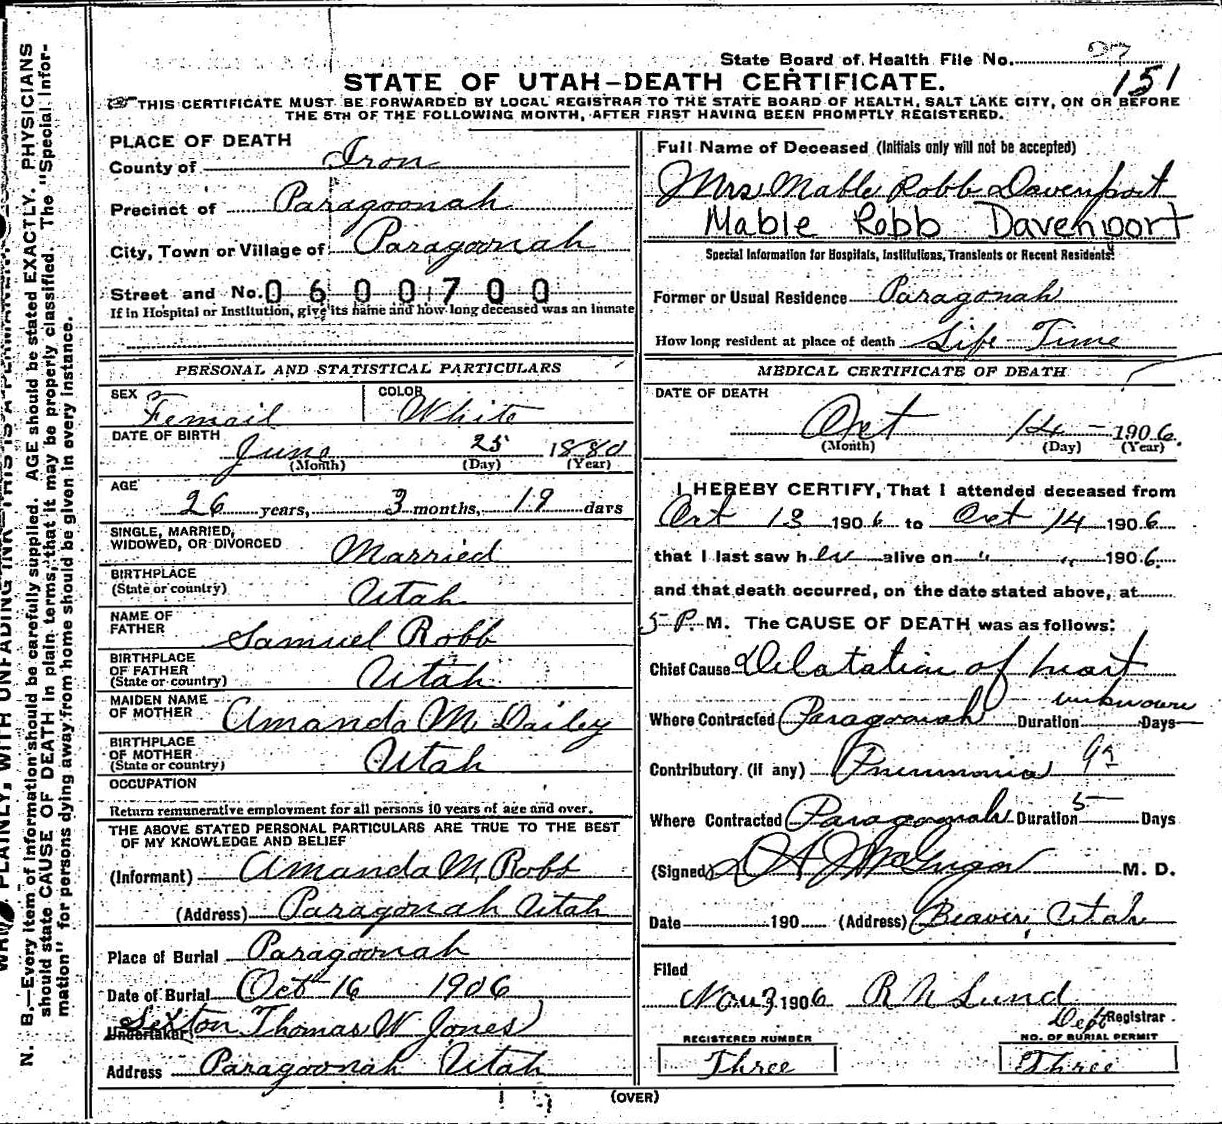 N. B.—Every item of information should be carefully supplied. AGE should be stated EXACTLY. PHYSICIANS
should state CAUSE OF DEATH in plain terms, that it may be properly classified. The "Special Infor-
mation" for persons dying away from home should be given in every instance.
PLAINLY, WITH UNFADING INK
State Board of Health File No.
151
STATE OF UTAH—DEATH CERTIFICATE.
THIS CERTIFICATE MUST BE FORWARDED BY LOCAL REGISTRAR TO THE STATE BOARD OF HEALTH, SALT LAKE CITY, ON OR BEFORE
THE 5TH OF THE FOLLOWING MONTH, AFTER FIRST HAVING BEEN PROMPTLY REGISTERED.
PLACE OF DEATH
County of Iron
Precinct of Paragoonah
City, Town or Village of Paragoonah
Street and No. 0600700
If in Hospital or Institution, give its name and how long deceased was an Inmate
PERSONAL AND STATISTICAL PARTICULARS
SEX Femail COLOR White
DATE OF BIRTH June 25 1880
(Month) (Day) (Year)
AGE
26 years, 3 months, 19 days
SINGLE, MARRIED,
WIDOWED, OR DIVORCED Married
BIRTHPLACE
(State or country) Utah
NAME OF
FATHER Samuel Robb
BIRTHPLACE
OF FATHER
(State or country) Utah
MAIDEN NAME
OF MOTHER Amanda M Dailey
BIRTHPLACE
OF MOTHER
(State or country) Utah
OCCUPATION
Return remunerative employment for all persons 10 years of age and over.
THE ABOVE STATED PERSONAL PARTICULARS ARE TRUE TO THE BEST
OF MY KNOWLEDGE AND BELIEF
(Informant) Amanda M. Robb
(Address) Paragonah Utah
Place of Burial Paragoonah
Date of Burial Oct 16 1906
Undertaker Sexton Thomas W Jones
Address Paragoonah Utah
Full Name of Deceased (Initials only will not be accepted)
Mrs Mable Robb Davenport
Mable Robb Davenport
Special Information for Hospitals, Institutions, Transients or Recent Residents:
Former or Usual Residence Paragonah
How long resident at place of death Life Time
MEDICAL CERTIFICATE OF DEATH
DATE OF DEATH
Oct 14 - 1906.
(Month) (Day) (Year)
I HEREBY CERTIFY, That I attended deceased from
Oct 13 1906 to Oct 14 1906
that I last saw her alive on " " 1906.
and that death occurred, on the date stated above, at
5 P. M. The CAUSE OF DEATH was as follows:
Chief Cause Dilatation of heart
Where Contracted Paragoonah Duration unknown Days
Contributory (if any) Pneumonia 93
Where Contracted Paragoonah Duration 5 Days
(Signed) M. D.
Date 190 (Address) Beaver, Utah
Filed
Nov 3 1906 R N Lund
Dept Registrar.
REGISTERED NUMBER NO. OF BURIAL PERMIT
Three Three
(OVER)